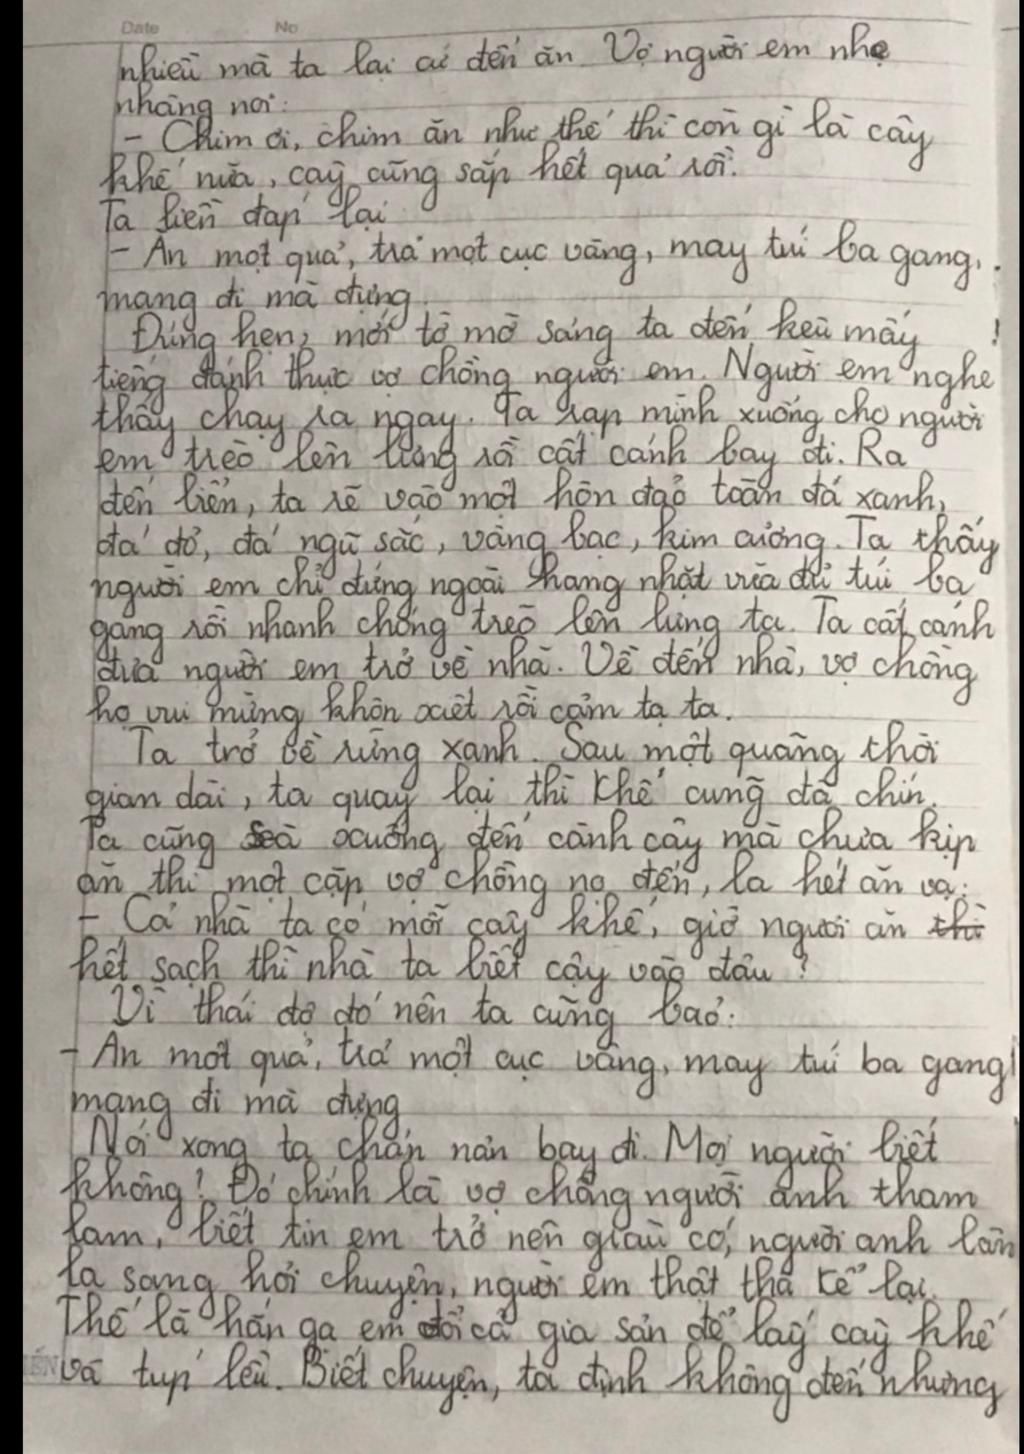 Date No
nhiều mà ta lại cứ đến ăn. Vợ người em nhẹ
nhàng nói:
- Chim ơi, chim ăn như thế thì còn gì là cây
khế nữa, cây cũng sắp hết quả rồi.
Ta liền đáp lại
- Ăn một quả, trả một cục vàng, may túi ba gang,
mang đi mà đựng.
Đúng hẹn, mới tờ mờ sáng ta đến, kêu mấy
tiếng đánh thức vợ chồng người em. Người em nghe
thấy chạy ra ngay. Ta rạp mình xuống cho người
em trèo lên lưng rồi cất cánh bay đi. Ra
đến biển, ta rẽ vào một hòn đảo toàn đá xanh,
đá đỏ, đá ngũ sắc, vàng bạc, kim cương. Ta thấy
người em chỉ đứng ngoài hang nhặt vừa đủ túi ba
gang rồi nhanh chóng trèo lên lưng ta. Ta cất cánh
đưa người em trở về nhà. Về đến nhà, vợ chồng
họ vui mừng khôn xiết rồi cảm tạ ta.
Ta trở về rừng xanh. Sau một quãng thời
gian dài, ta quay lại thì khế cũng đã chín.
Ta cũng sà xuống đến cành cây mà chưa kịp
ăn thì một cặp vợ chồng nọ đến, la hét ăn vạ:
- Cả nhà ta có mỗi cây khế, giờ ngươi ăn
hết sạch thì nhà ta biết cậy vào đâu?
Vì thái độ đó nên ta cũng bảo:
- Ăn một quả, trả một cục vàng, may túi ba gang
mang đi mà đựng
Nói xong ta chán nản bay đi. Mọi người biết
không! Đó chính là vợ chồng người anh tham
lam, biết tin em trở nên giàu có, người anh lân
la sang hỏi chuyện, người em thật thà kể lại.
Thế là hắn gạ em đổi cả gia sản để lấy cây khế
và túp lều. Biết chuyện, ta định không đến nhưng